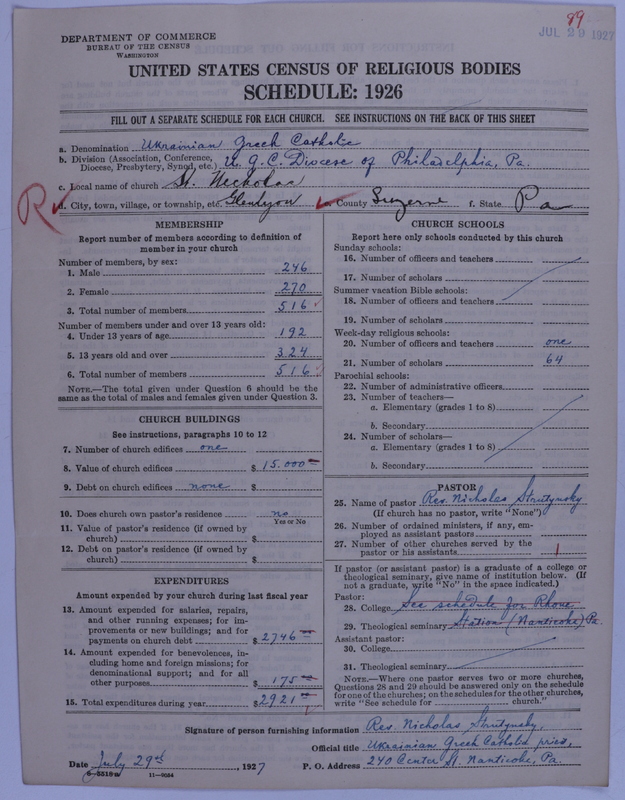 89
JUL 29 1927
DEPARTMENT OF COMMERCE
BUREAU OF THE CENSUS
WASHINGTON
UNITED STATES CENSUS OF RELIGIOUS BODIES
SCHEDULE: 1926
FILL OUT A SEPARATE SCHEDULE FOR EACH CHURCH. SEE INSTRUCTIONS ON THE BACK OF THIS SHEET
a. Denomination Ukrainian Greek Catholic
b. Division (Association, Conference, Diocese, Presbytery, Synod, etc.) U. G. C. Diocese of Philadelphia, Pa.
c. Local name of church St. Nicholas
R
d. City, town, village, or township, etc. Glenlyon e. County Luzerne f. State Pa
MEMBERSHIP
Report number of members according to definition of
member in your church
Number of members, by sex:
1. Male 246
2. Female 270
3. Total number of members 516
Number of members under and over 13 years old:
4. Under 13 years of age 192
5. 13 years old and over 324
6. Total number of members 516
NOTE.—The total given under Question 6 should be the
same as the total of males and females given under Question 3.
CHURCH BUILDINGS
See instructions, paragraphs 10 to 12
7. Number of church edifices one
8. Value of church edifices $ 15.000
9. Debt on church edifices none $
10. Does church own pastor's residence no
Yes or No
11. Value of pastor's residence (if owned by
church) $
12. Debt on pastor's residence (if owned by
church) $
EXPENDITURES
Amount expended by your church during last fiscal year
13. Amount expended for salaries, repairs,
and other running expenses; for im-
provements or new buildings; and for
payments on church debt $ 2746
14. Amount expended for benevolences, in-
cluding home and foreign missions; for
denominational support; and for all
other purposes $ 175
15. Total expenditures during year $ 2921
CHURCH SCHOOLS
Report here only schools conducted by this church
Sunday schools:
16. Number of officers and teachers
17. Number of scholars
Summer vacation Bible schools:
18. Number of officers and teachers
19. Number of scholars
Week-day religious schools:
20. Number of officers and teachers one
21. Number of scholars 64
Parochial schools:
22. Number of administrative officers
23. Number of teachers—
a. Elementary (grades 1 to 8)
b. Secondary
24. Number of scholars—
a. Elementary (grades 1 to 8)
b. Secondary
PASTOR
25. Name of pastor Rev. Nicholas Strutynsky
(If church has no pastor, write "None")
26. Number of ordained ministers, if any, em-
ployed as assistant pastors
27. Number of other churches served by the
pastor or his assistants 1
If pastor (or assistant pastor) is a graduate of a college or
theological seminary, give name of institution below. (If
not a graduate, write "No" in the space indicated.)
Pastor:
28. College See schedule for Rhone
29. Theological seminary Station (Nanticoke) Pa.
Assistant pastor:
30. College
31. Theological seminary
NOTE.—Where one pastor serves two or more churches,
Questions 28 and 29 should be answered only on the schedule
for one of the churches; on the schedules for the other churches,
write "See schedule for church."
Signature of person furnishing information Rev. Nicholas Strutynsky,
Official title Ukrainian Greek Catholic priest,
Date July 29th, 1927 P. O. Address 240 Center St. Nanticoke, Pa.
11—9054